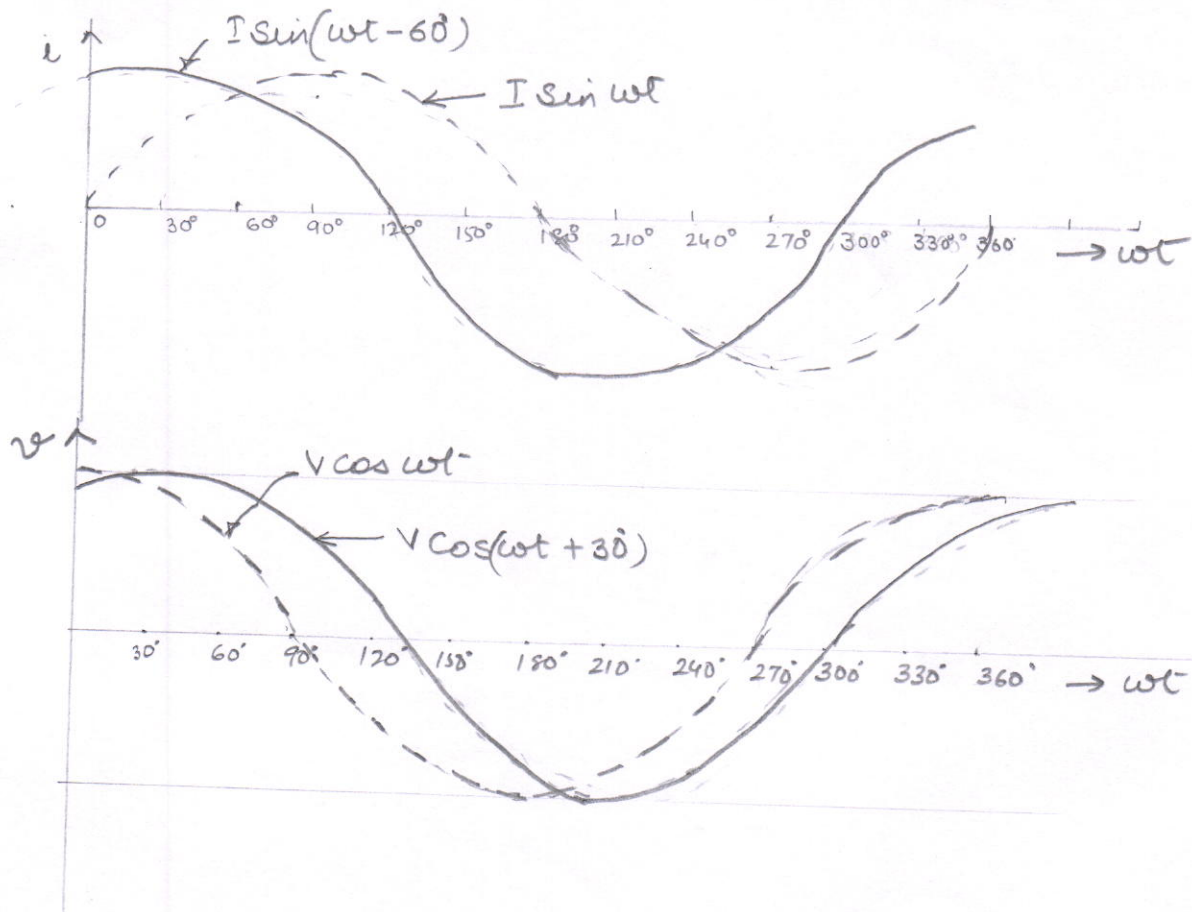 i
I sin(ωt - 60°)
I sin ωt
0 30° 60° 90° 120° 150° 180° 210° 240° 270° 300° 330° 360°
→ ωt
v
V cos ωt
V cos(ωt + 30°)
30° 60° 90° 120° 150° 180° 210° 240° 270° 300° 330° 360° → ωt